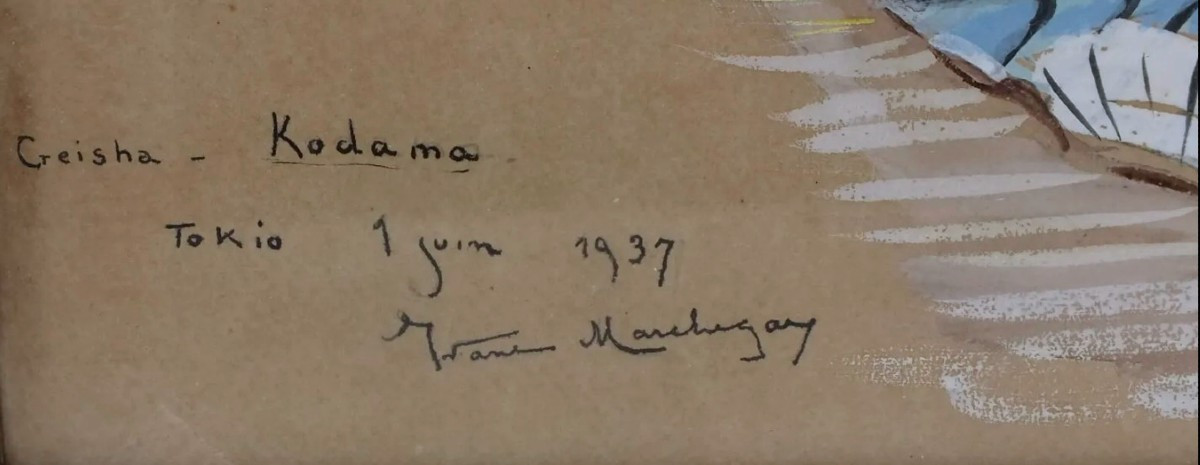 Geisha - Kodama
Tokio 1 juin 1937
Yvane Marchegay